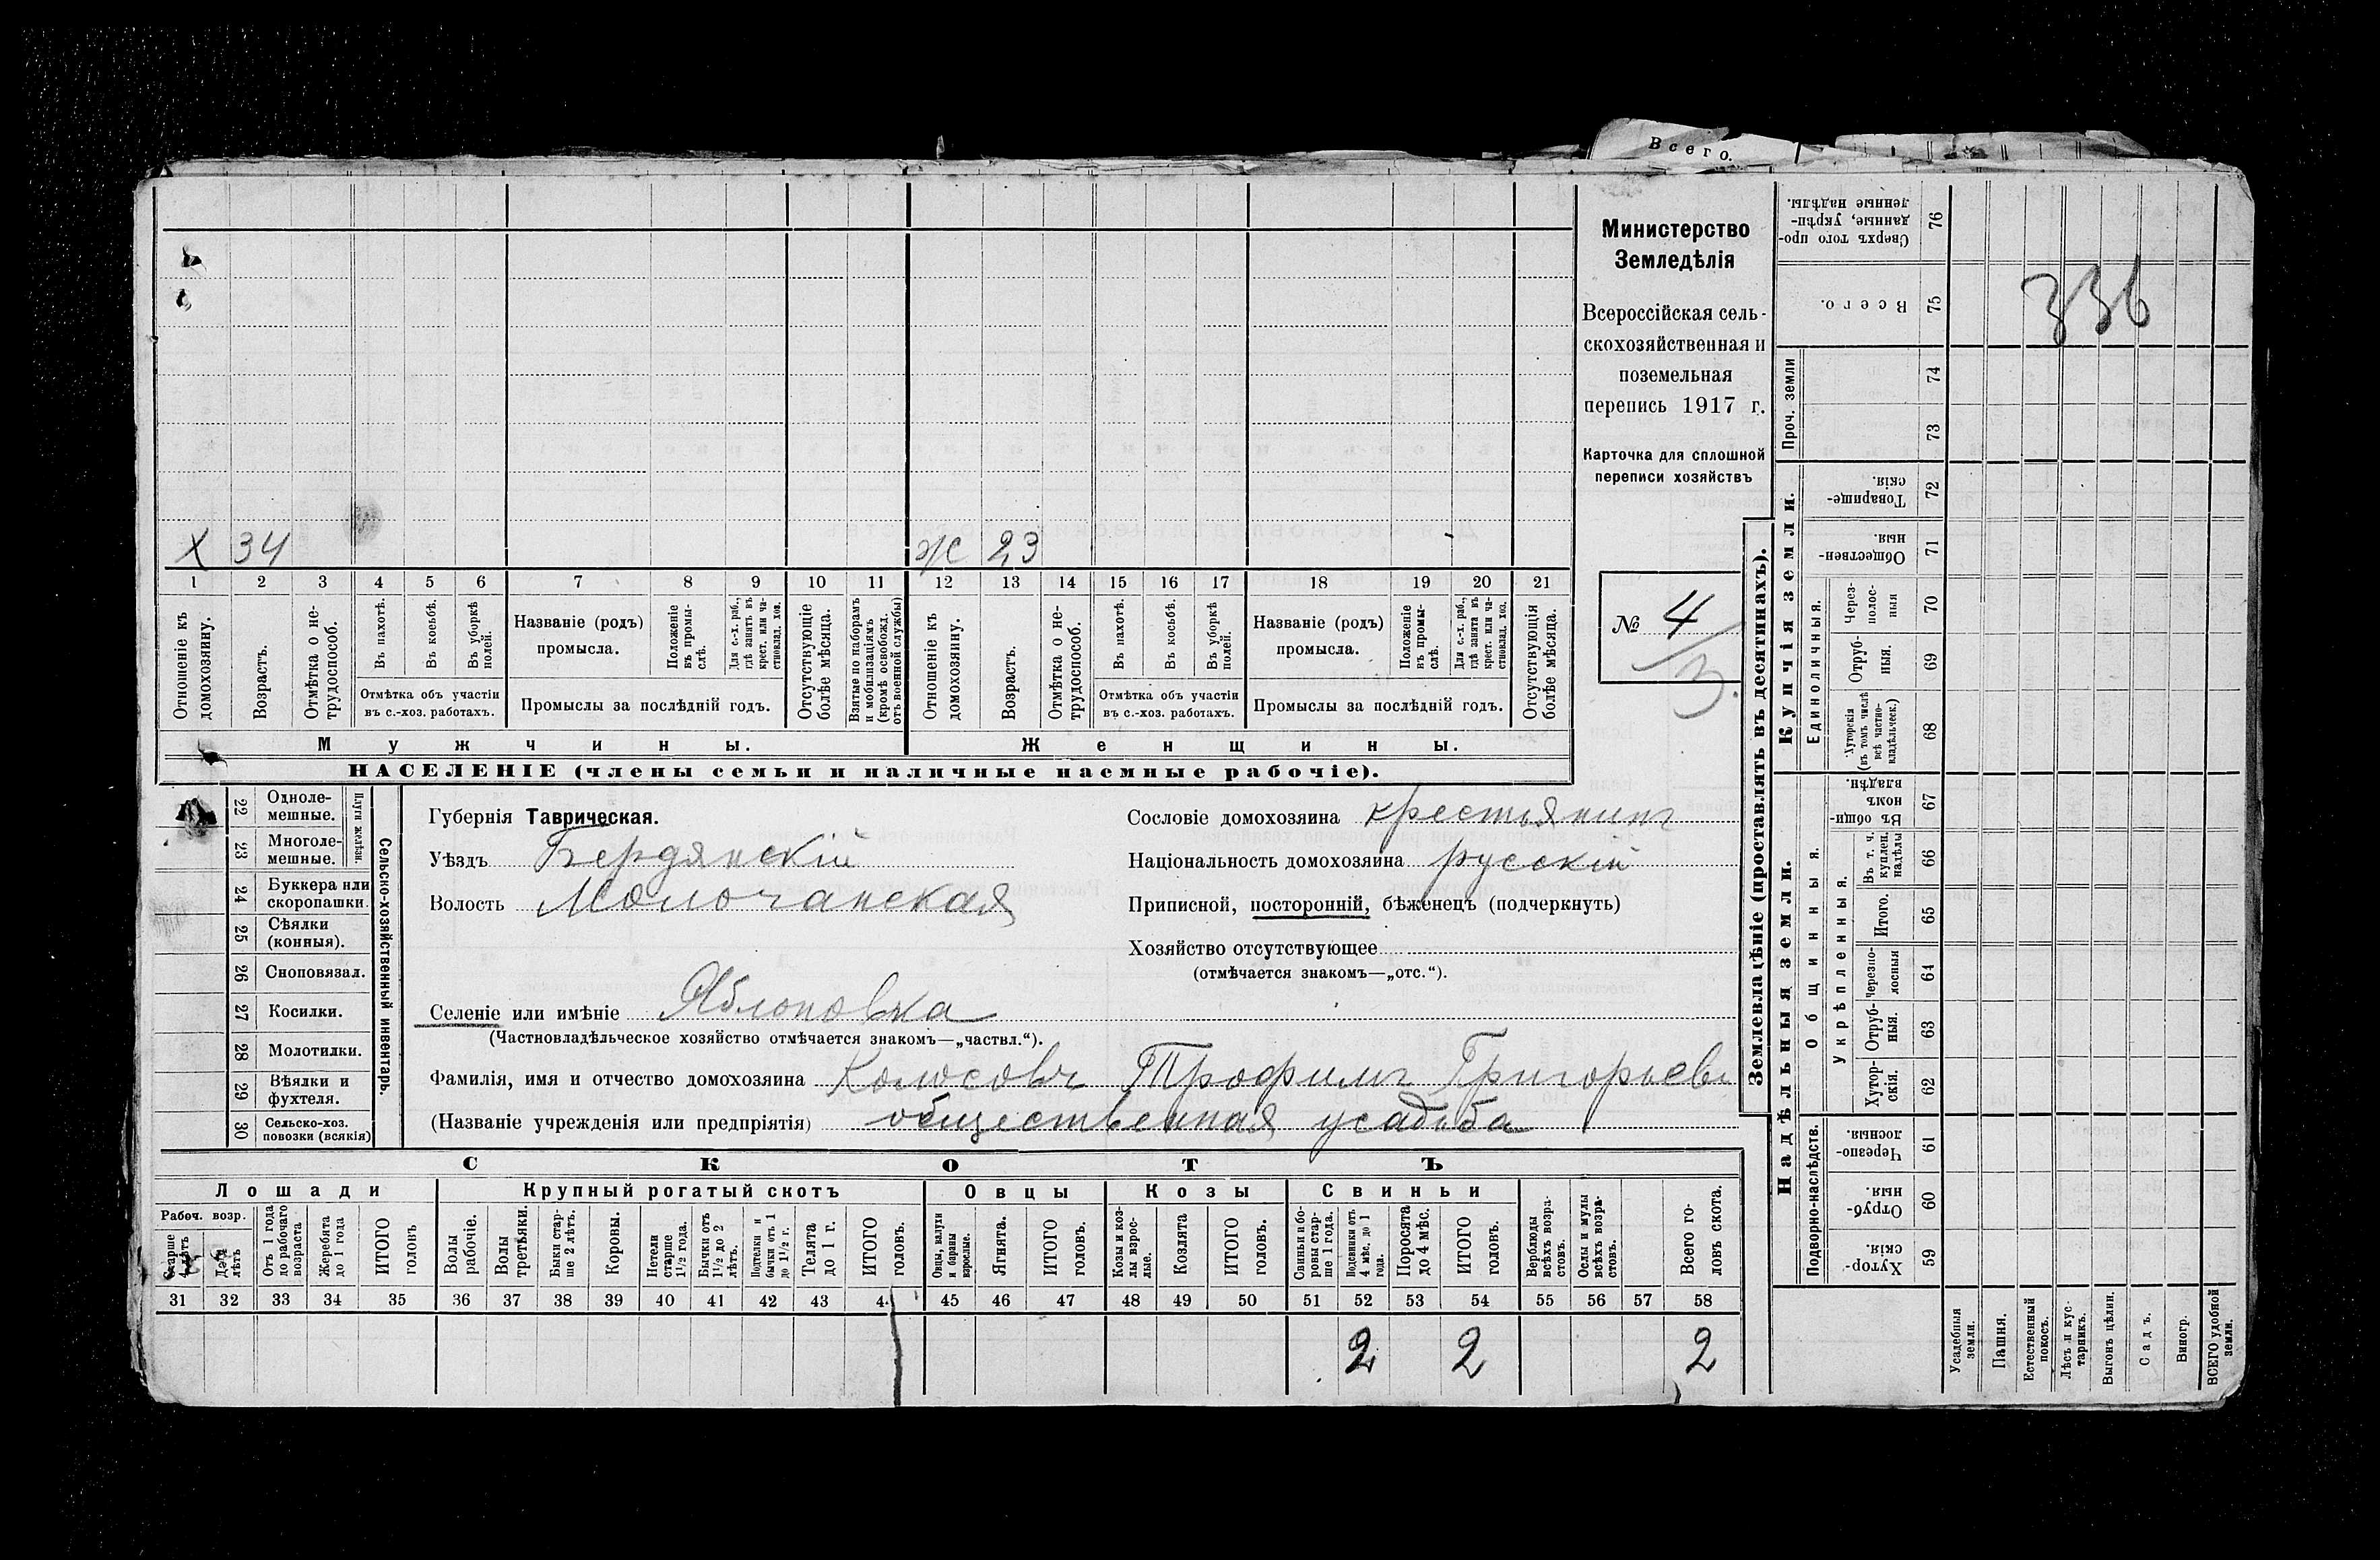 Всего.
Х 34
Ж 23
1 2 3 4 5 6 7 8 9 10 11 12 13 14 15 16 17 18 19 20 21
Отношеніе къ домохозяину.
Возрастъ.
Отмѣтка о нетрудоспособ.
Въ пахотѣ.
Въ косьбѣ.
Въ уборкѣ полей.
Отмѣтка объ участіи
въ с.-хоз. работахъ.
Названіе (родъ)
промысла.
Положеніе въ промыслѣ.
Для с.-х. раб., гдѣ занятъ въ крест. или частновлад. хоз.
Промыслы за послѣдній годъ.
Отсутствующіе болѣе мѣсяца.
Взятые по наборамъ и мобилизаціямъ (кромѣ освобожд. отъ военной службы)
Отношеніе къ домохозяину.
Возрастъ.
Отмѣтка о нетрудоспособ.
Въ пахотѣ.
Въ косьбѣ.
Въ уборкѣ полей.
Отмѣтка объ участіи
въ с.-хоз. работахъ.
Названіе (родъ)
промысла.
Положеніе въ промыслѣ.
Для с.-х. раб., гдѣ занята въ крест. или частновлад. хоз.
Промыслы за послѣдній годъ.
Отсутствующія болѣе мѣсяца.
Мужчины. Женщины.
НАСЕЛЕНІЕ (члены семьи и наличные наемные рабочіе).
Министерство
Земледѣлія
Всероссійская сель-
скохозяйственная и
поземельная
перепись 1917 г.
Карточка для сплошной
переписи хозяйствъ
№ 4
3.
22 Одноле-
мешные.
23 Многоле-
мешные.
Плуги желѣзн
24 Буккера или
скоропашки.
25 Сѣялки
(конныя).
26 Сноповязал.
27 Косилки.
28 Молотилки.
29 Вѣялки и
фухтеля.
30 Сельско-хоз.
повозки (всякія)
Сельско-хозяйственный инвентарь.
Губернія Таврическая.
Уѣздъ Бердянскій
Волость Молочанская
Сословіе домохозяина крестьянинъ
Національность домохозяина русскій
Приписной, посторонній, бѣженецъ (подчеркнуть)
Хозяйство отсутствующее
(отмѣчается знакомъ—„отс.“).
Селеніе или имѣніе Яблоновка
(Частновладѣльческое хозяйство отмѣчается знакомъ—„частвл.“).
Фамилія, имя и отчество домохозяина Колосовъ Трофимъ Григорьев
(Названіе учрежденія или предпріятія) общественная усадьба
СКОТЪ
Лошади Крупный рогатый скотъ Овцы Козы Свиньи
Рабоч. возр.
Старше 4 лѣтъ
До 4 лѣтъ
Отъ 1 года до рабочаго возраста
Жеребята до 1 года
ИТОГО головъ
Волы рабочіе.
Волы третьяки.
Быки старше 2 лѣтъ.
Коровы.
Нетели старше 1½ года.
Бычки отъ 1½ до 2 лѣтъ.
Подтелки и бычки отъ 1 до 1½ г.
Телята до 1 г.
ИТОГО головъ.
Овцы, валухи и бараны взрослые.
Ягнята.
ИТОГО головъ.
Козы и козлы взрослые.
Козлята
ИТОГО головъ.
Свиньи и боровы старше 1 года.
Подсвинки отъ 4 мѣс. до 1 года.
Поросята до 4 мѣс.
ИТОГО головъ.
Верблюды всѣхъ возрастовъ.
Ослы и мулы всѣхъ возрастовъ.
Всего головъ скота.
31 32 33 34 35 36 37 38 39 40 41 42 43 4. 45 46 47 48 49 50 51 52 53 54 55 56 57 58
2 2 2
Землевладѣніе (проставлять въ десятинахъ).
Надѣльныя земли. Купчія земли. Проч. земли
Подворно-наслѣдств.
Общинныя.
Укрѣпленныя.
Единоличныя.
Хуторскія 59
Отрубныя 60
Черезполосныя. 61
Хуторскія. 62
Отрубныя. 63
Черезполосныя 64
Итого. 65
Въ т. ч. куплен. надѣлы 66
Въ общинномъ владѣн. 67
Хуторскія (въ томъ числѣ всѣ частновладѣльческ.) 68
Отрубныя. 69
Черезполосныя 70
Общественныя. 71
Товарищескія. 72
73
74
Всего. 75
Сверхъ того проданные, укрѣпленные надѣлы. 76
336
Усадебныя земли.
Пашня.
Естественный покосъ.
Лѣсъ и кустарникъ.
Выгонъ цѣлин.
Садъ.
Виногр.
ВСЕГО удобной земли.